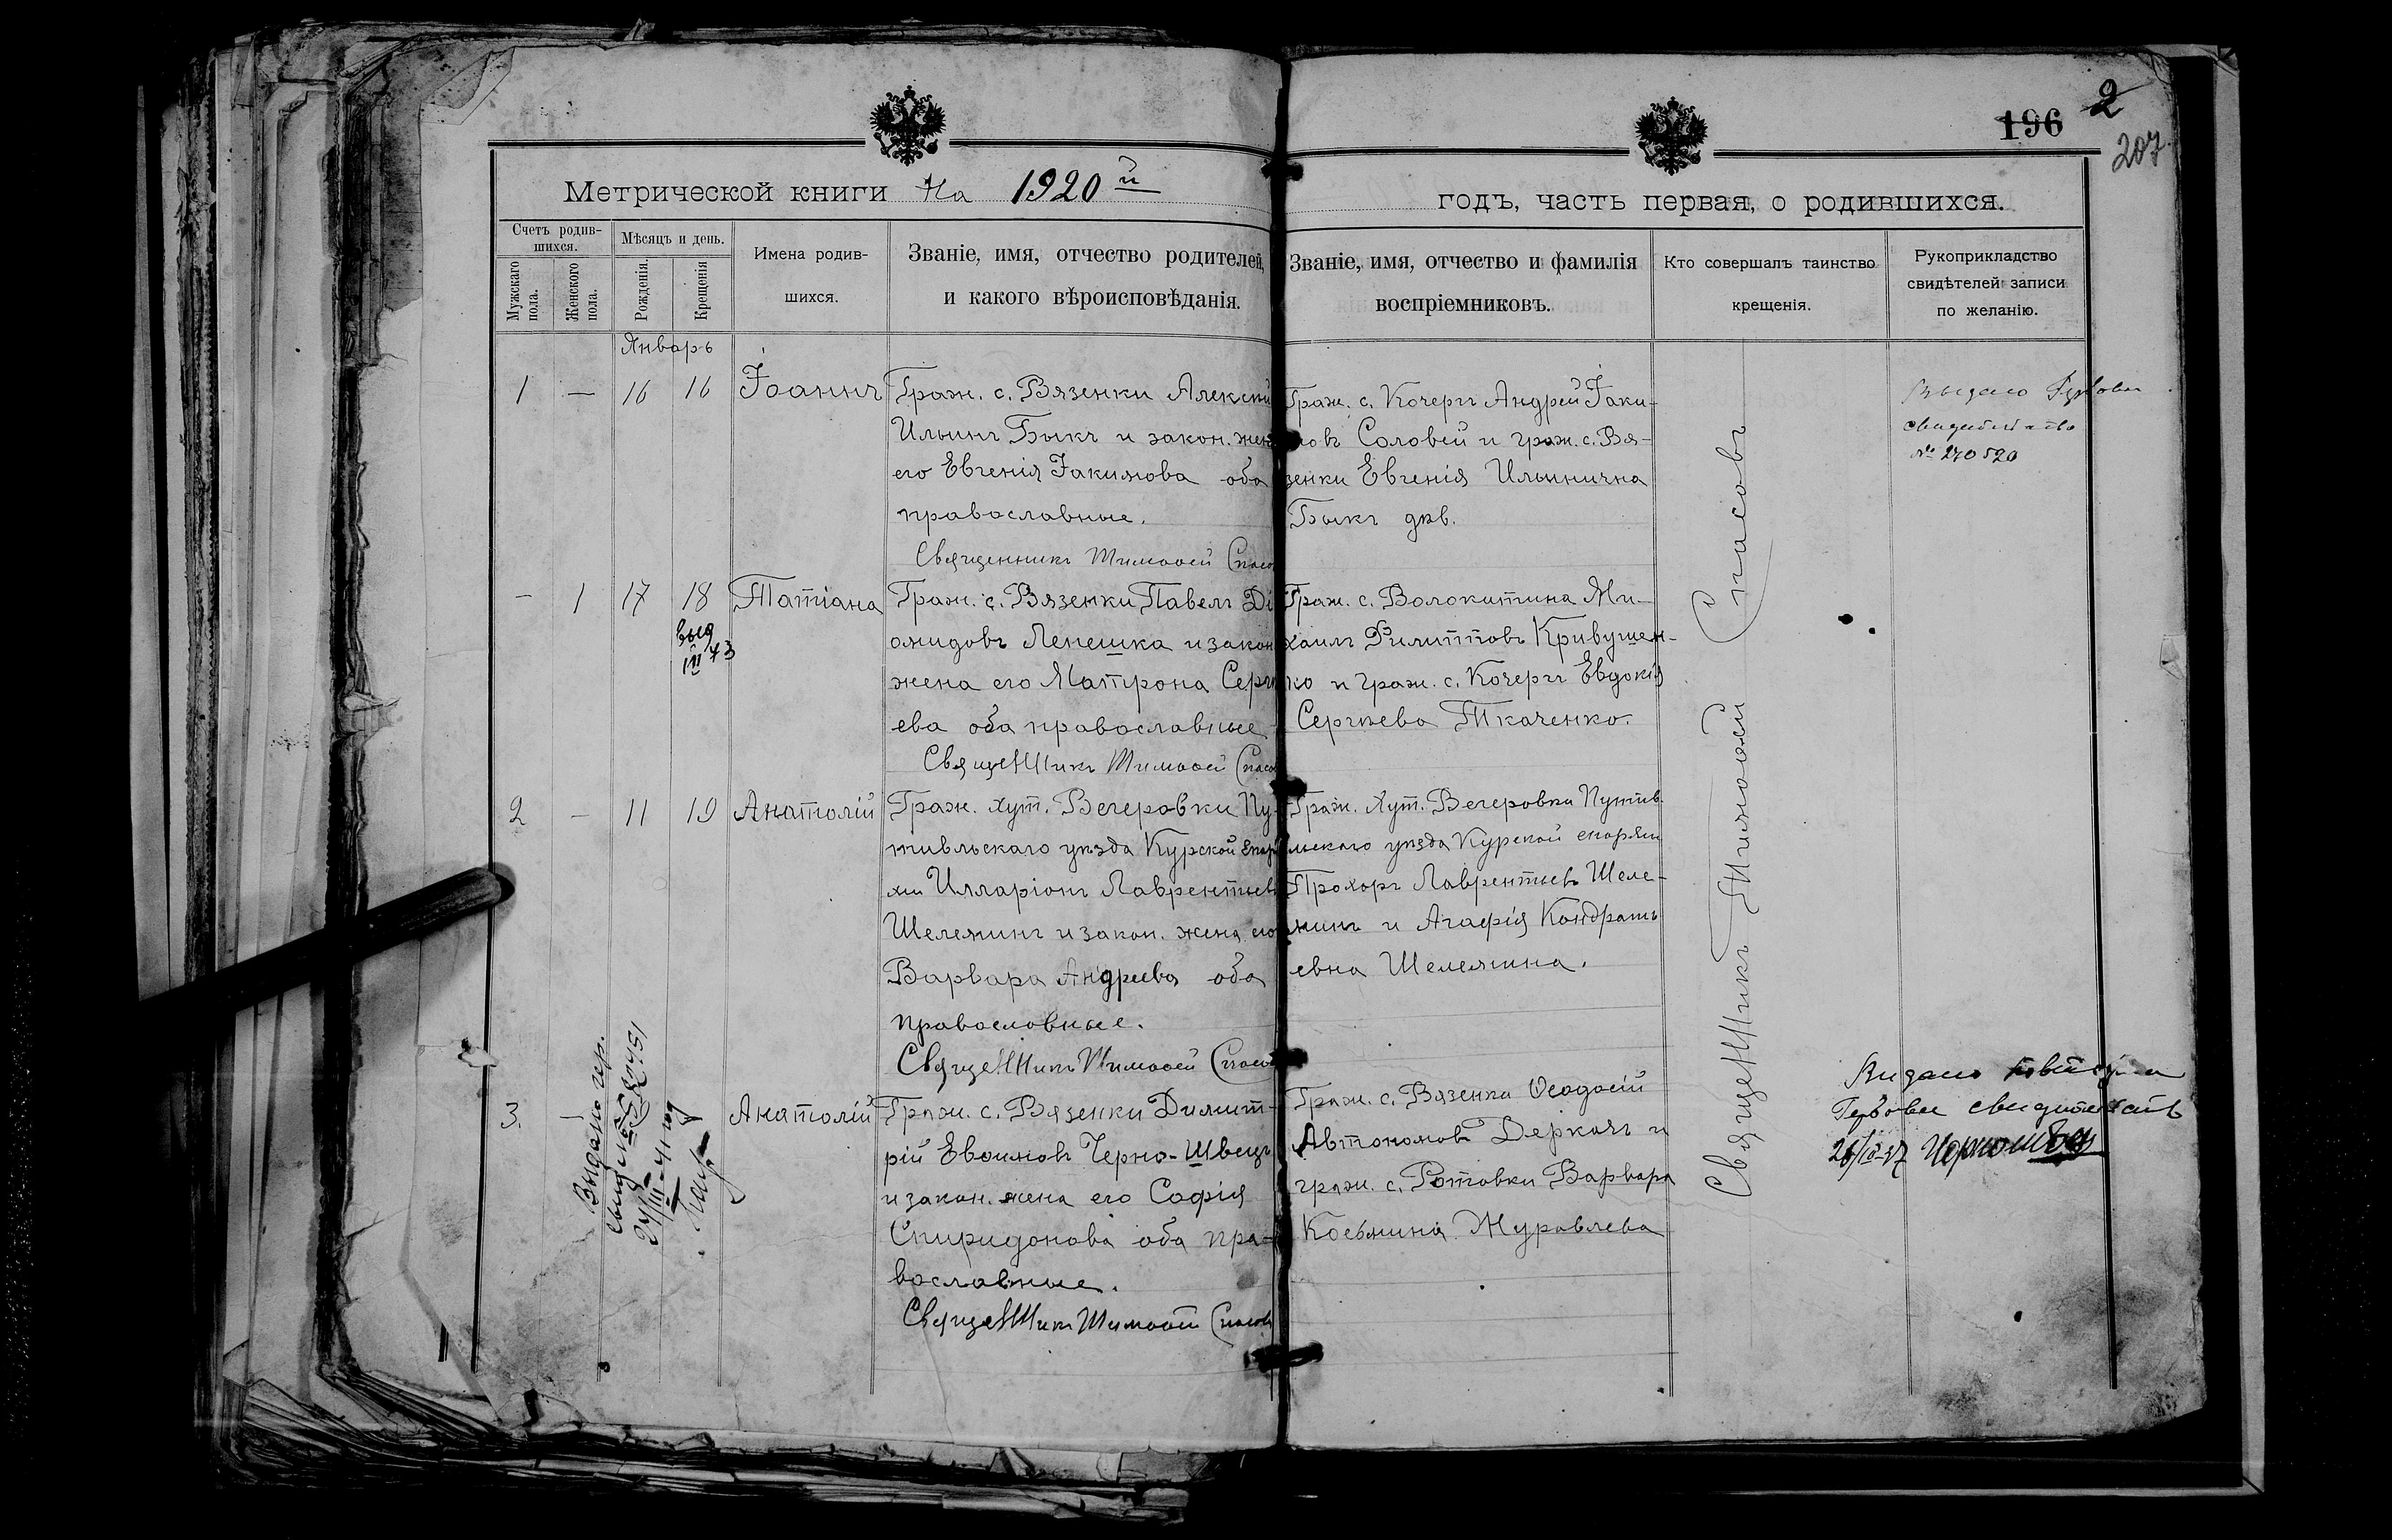 196 2
207
Метрической книги на 1920й
годъ, часть первая, о родившихся.
Счетъ родив-
шихся.
Мужскаго
пола.
Женскаго
пола.
Мѣсяцъ и день.
Рожденія.
Крещенія
Имена родив-
шихся.
Званіе, имя, отчество родителей,
и какого вѣроисповѣданія.
Званіе, имя, отчество и фамилія
воспріемниковъ.
Кто совершалъ таинство
крещенія.
Рукоприкладство
свидѣтелей записи
по желанію.
Январь
1 — 16 16 Іоаннъ
Граж. с. Вязенки Алексѣй
Ильинъ Быкъ и закон. жена
его Евгенія Іакимова оба
православные.
Священникъ Тимоѳей Спасо
Граж. с. Кочергъ Андрей Іаки-
мовъ Соловей и граж. с. Вя-
зенки Евгенія Ильинична
Быкъ дѣв.
свидетельство
№ 270520
— 1 17 18 Татіана
выд
III 73
Граж. с. Вязенки Павелъ Ді
омидовъ Лепешка и закон
жена его Матрона Серг
ева оба православные
Священникъ Тимоѳей Спасо
Граж. с. Волокитина Ми-
хаилъ Филипповъ Кривушен-
ко и граж. с. Кочергъ Евдокія
Сергѣева Ткаченко.
2 — 11 19 Анатолій
Граж. хут. Вегеровки Пу-
тивльскаго уѣзда Курской епар
хіи Илларіонъ Лаврентьевъ
Шелеминъ и закон. жена его
Варвара Андреева оба
православные.
Священникъ Тимоѳей Спасо
Граж. хут. Вегеровки Путив-
льскаго уѣзда Курской епархіи
Прохоръ Лаврентьевъ Шеле-
минъ и Агафія Кондрать
евна Шелемина.
3. — Анатолій
Выдано гер.
свид №
24/III-41 год
Граж. с. Вязенки Димит-
рій Евѳимовъ Черно-Швецъ
и закон. жена его Софія
Спиридонова оба пра-
вославные.
Священникъ Тимоѳей Спасовъ
Граж. с. Вязенки Ѳеодосій
Автономовъ Деркачъ и
граж. с. Ротовки Варвара
Косьмина Журавлева
Священникъ Тимоѳей Спасовъ